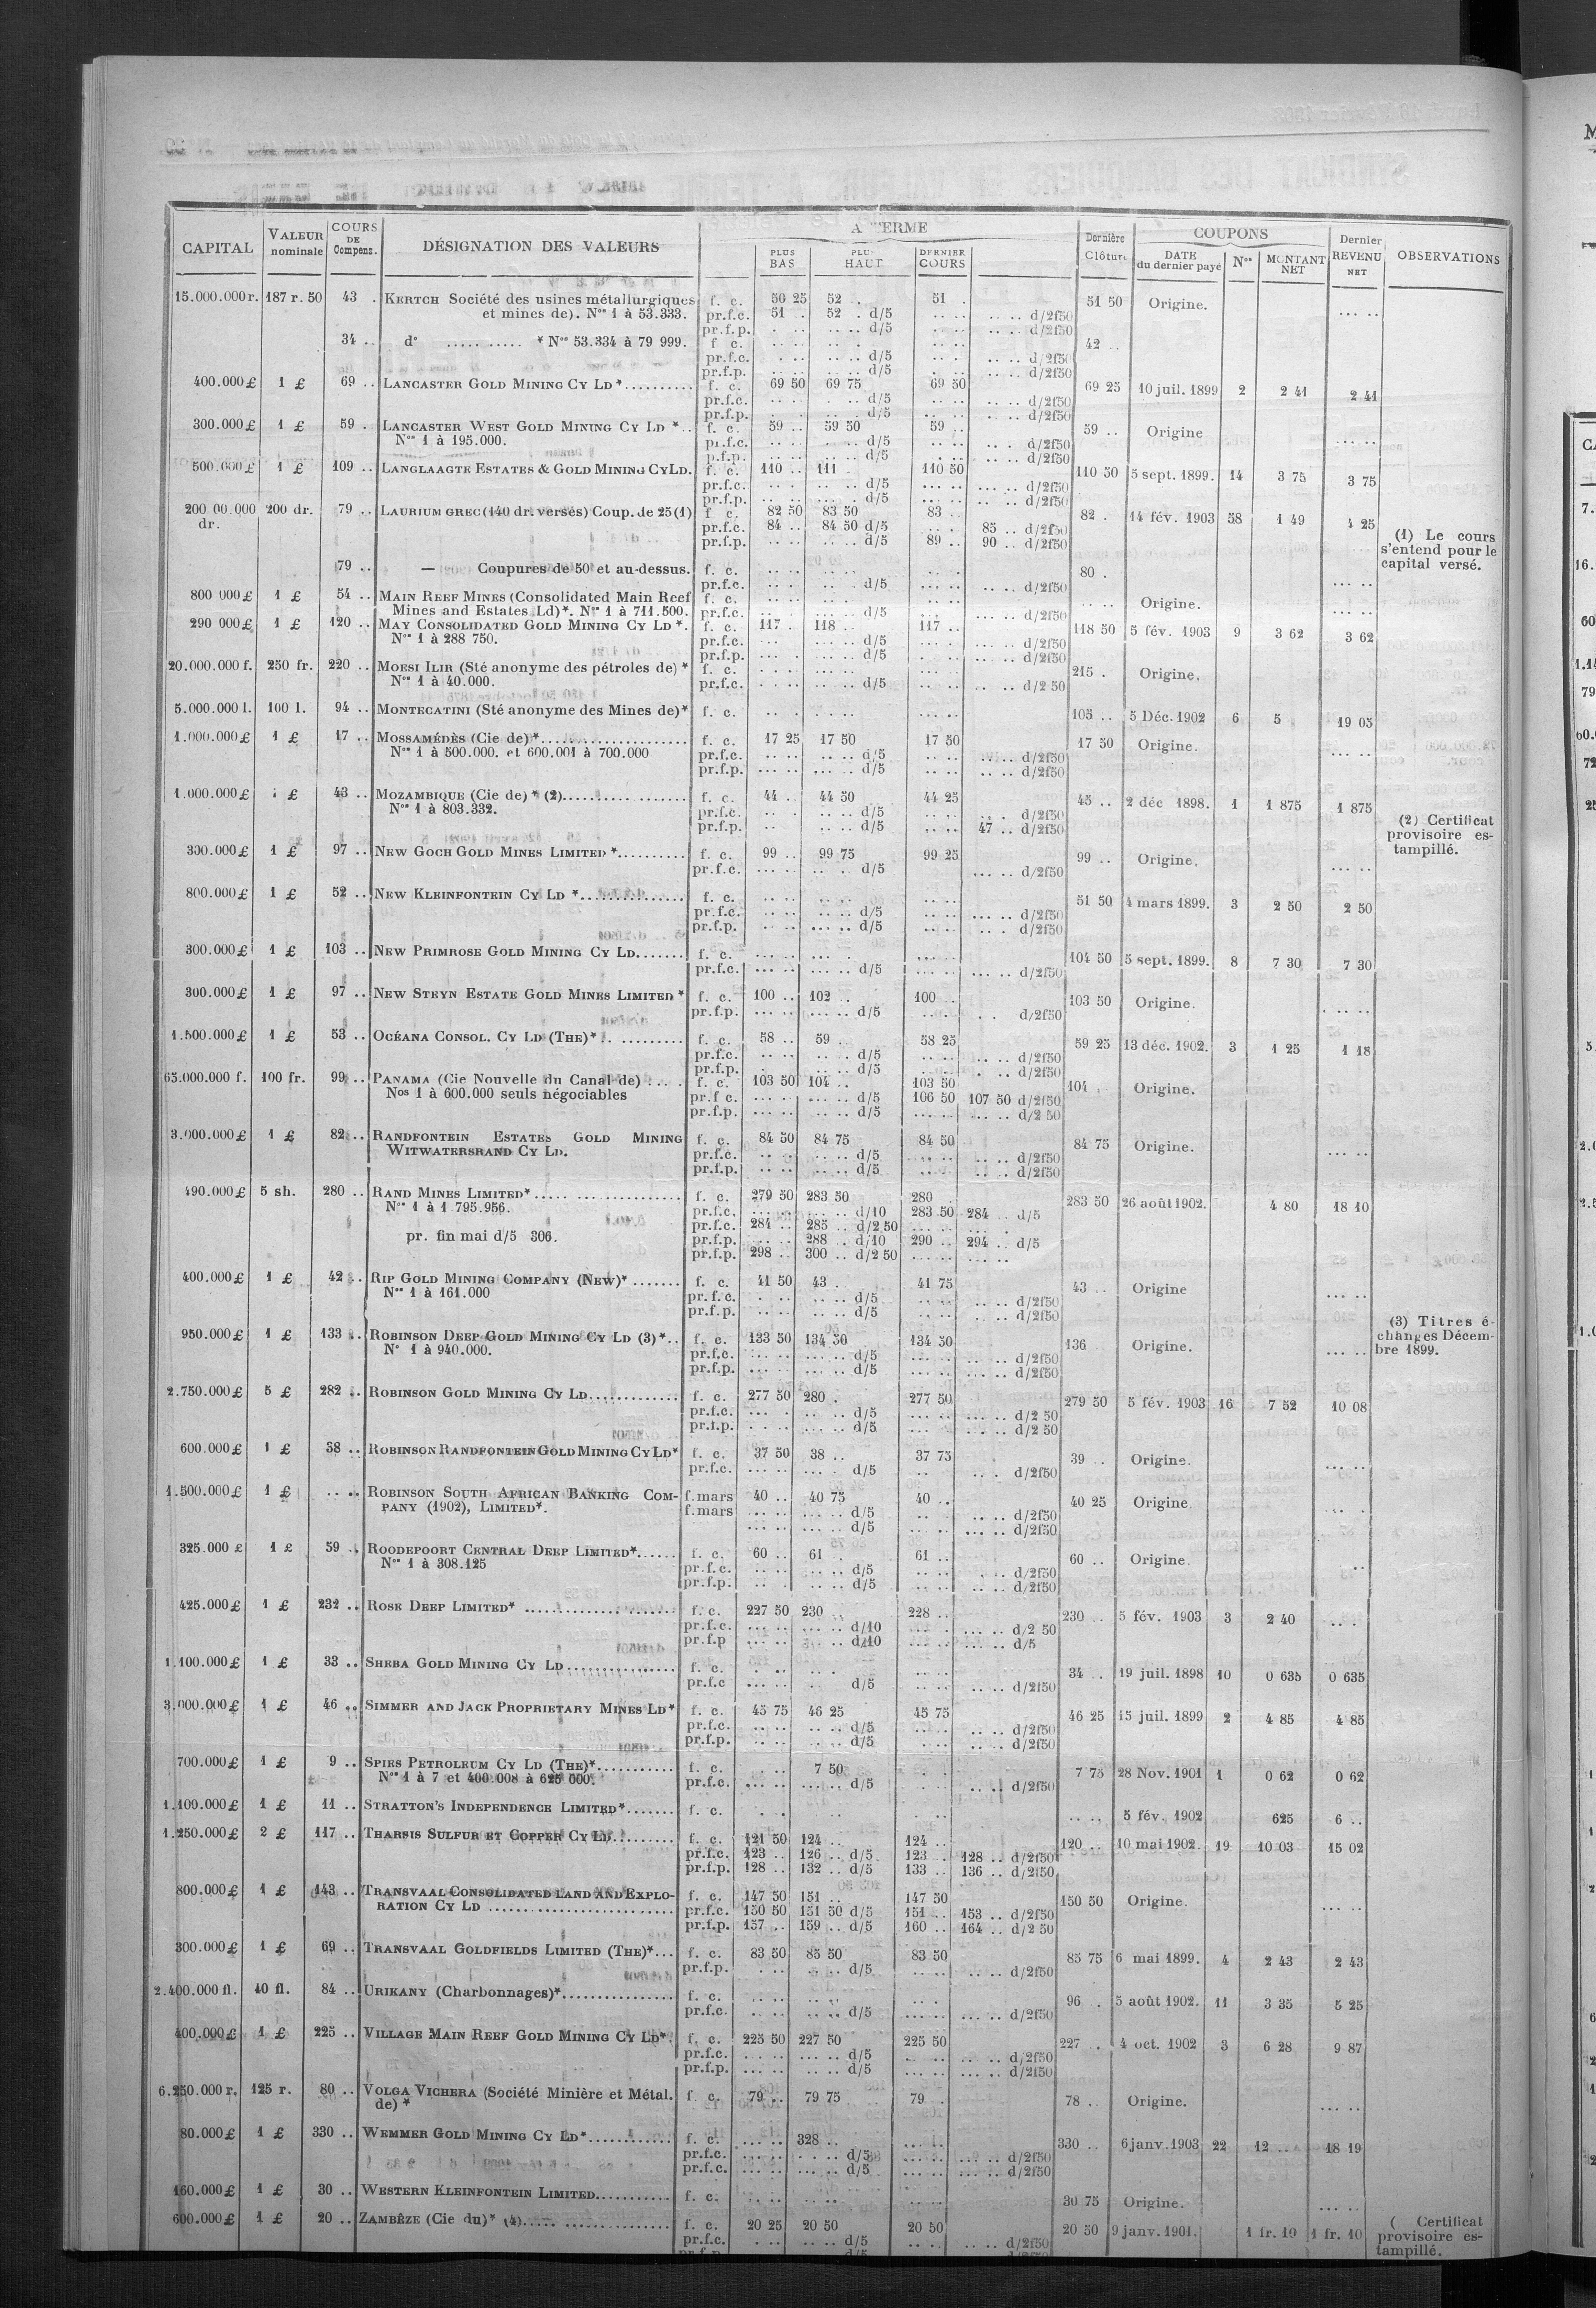 CAPITAL | VALEUR nominale | COURS DE Compens. | DÉSIGNATION DES VALEURS | A TERME | PLUS BAS | PLUS HAUT | DERNIER COURS | Dernière Clôture | COUPONS | DATE du dernier payé | Nos | MONTANT NET | Dernier REVENU NET | OBSERVATIONS
15.000.000 r. 187 r. 50 43 . KERTCH Société des usines métallurgiques f. c. 50 25 52 . 51 . 51 50 Origine. ... ..
et mines de). Nos 1 à 53.333. pr.f.c. 51 . 52 . d/5 .. .. .. .. d/2f50
pr.f.p. . .. .. .. d/5 .. .. d/2f50
34 .. d° ..... ..... * Nos 53.334 à 79 999. f c. 42 ..
pr.f.c. d/5 d/2f50
pr.f.p. d/5 d/2f50
400.000 £ 1 £ 69 .. LANCASTER GOLD MINING CY LD *.......... f. c. 69 50 69 75 69 50 69 25 10 juil. 1899 2 2 41 2 41
pr.f.c. d/5 d/2f50
pr.f.p. d/5 d/2f50
300.000 £ 1 £ 59 . LANCASTER WEST GOLD MINING CY LD *.. f. c. 59 .. 59 50 59 .. 59 .. Origine ... ..
Nos 1 à 195.000. pr.f.c. d/5 d/2f50
p.f.p. d/5 d/2f50
500.000 £ 1 £ 109 .. LANGLAAGTE ESTATES & GOLD MINING CY LD. f. c. 110 .. 111 110 50 110 50 5 sept. 1899. 14 3 75 3 75
pr.f.c. d/5 d/2f50
pr.f.p. d/5 d/2f50
200 00.000 dr. 200 dr. 79 .. LAURIUM GREC (140 dr. versés) Coup. de 25 (1) f c. 82 50 83 50 83 .. 82 . 14 fév. 1903 58 1 49 4 25
pr.f.c. 84 .. 84 50 d/5 85 .. d/2f50
pr.f.p. d/5 89 .. 90 .. d/2f50
(1) Le cours
s'entend pour le
capital versé.
79 .. — Coupures de 50 et au-dessus. f. c. 80 .
pr.f.c. d/5 d/2f50
800 000 £ 1 £ 54 .. MAIN REEF MINES (Consolidated Main Reef f. c. Origine. ... ..
Mines and Estates Ld)*. Nos 1 à 711.500. pr.f.c. d/5 d/2f50
290 000 £ 1 £ 120 .. MAY CONSOLIDATED GOLD MINING CY LD *. f. c. 117 . 118 .. 117 .. 118 50 5 fév. 1903 9 3 62 3 62
Nos 1 à 288 750. pr.f.c. d/5 d/2f50
pr.f.p. d/5 d/2f50
20.000.000 f. 250 fr. 220 .. MOESI ILIR (Sté anonyme des pétroles de) * f. c. 215 . Origine.
Nos 1 à 40.000. pr.f.c. d/5 d/2 50
5.000.000 l. 100 l. 94 .. MONTECATINI (Sté anonyme des Mines de)* f. c. 105 .. 5 Déc. 1902 6 5 19 05
1.000.000 £ 1 £ 17 .. MOSSAMÉDÈS (Cie de)*..................... f. c. 17 25 17 50 17 50 17 50 Origine. ... ..
Nos 1 à 500.000. et 600.001 à 700.000 pr.f.c. d/5 d/2f50
pr.f.p. d/5 d/2f50
1.000.000 £ £ 43 .. MOZAMBIQUE (Cie de) * (2).................. f. c. 44 .. 44 50 44 25 45 .. 2 déc 1898. 1 1 875 1 875
Nos 1 à 803.332. pr.f.c. d/5 d/2f50
pr.f.p. d/5 47 .. d/2f50
(2) Certificat
provisoire es-
tampillé.
300.000 £ 1 £ 97 .. NEW GOCH GOLD MINES LIMITED *.......... f. c. 99 .. 99 75 99 25 99 .. Origine. ... ..
pr.f.c. d/5 d/2f50
800.000 £ 1 £ 52 .. NEW KLEINFONTEIN CY LD *............... f. c. 51 50 4 mars 1899. 3 2 50 2 50
pr.f.c. d/5 d/2f50
pr.f.p. d/5 d/2f50
300.000 £ 1 £ 103 .. NEW PRIMROSE GOLD MINING CY LD....... f. c. 104 50 5 sept. 1899. 8 7 30 7 30
pr.f.c. d/5 d/2f50
300.000 £ 1 £ 97 .. NEW STEYN ESTATE GOLD MINES LIMITED * f. c. 100 .. 102 .. 100 .. 103 50 Origine.
pr.f.p. d/5 d/2f50
1.500.000 £ 1 £ 53 .. OCÉANA CONSOL. CY LD (THE)*.. ......... f. c. 58 .. 59 . 58 25 59 25 13 déc. 1902. 3 1 25 1 18
pr.f.c. d/5 d/2f50
pr.f.p. d/5 d/2f50
65.000.000 f. 100 fr. 99 .. PANAMA (Cie Nouvelle du Canal de) ..... f. c. 103 50 104 .. 103 50 104 . Origine.
Nos 1 à 600.000 seuls négociables pr.f c. d/5 106 50 107 50 d/2f50
pr.f.p. d/5 d/2 50
3.000.000 £ 1 £ 82 .. RANDFONTEIN ESTATES GOLD MINING f. c. 84 50 84 75 84 50 84 75 Origine. ... ..
WITWATERSRAND CY LD. pr.f.c. d/5 d/2f50
pr.f.p. d/5 d/2f50
490.000 £ 5 sh. 280 .. RAND MINES LIMITED*..................... f. c. 279 50 283 50 280 . 283 50 26 août 1902. 4 80 18 10
Nos 1 à 1 795.956. pr.f.c. d/10 283 50 284 .. d/5
pr.f.c. 284 .. 285 .. d/2 50
pr. fin mai d/5 306. pr.f.p. 288 .. d/10 290 .. 294 .. d/5
pr.f.p. 298 .. 300 .. d/2 50
400.000 £ 1 £ 42 .. RIP GOLD MINING COMPANY (NEW)*....... f. c. 41 50 43 . 41 75 43 .. Origine ... ..
Nos 1 à 161.000 pr.f.c. d/5 d/2f50
pr.f.p. d/5 d/2f50
950.000 £ 1 £ 133 .. ROBINSON DEEP GOLD MINING CY LD (3)*.. f. c. 133 50 134 50 134 50 136 Origine. ... ..
N° 1 à 940.000. pr.f.c. d/5 d/2f50
pr.f.p. d/5 d/2f50
(3) Titres é-
changes Décem-
bre 1899.
2.750.000 £ 5 £ 282 .. ROBINSON GOLD MINING CY LD............. f. c. 277 50 280 . 277 50 279 50 5 fév. 1903 16 7 52 10 08
pr.f.c. d/5 d/2 50
pr.f.p. d/5 d/2 50
600.000 £ 1 £ 38 .. ROBINSON RANDFONTEIN GOLD MINING CY LD* f. c. 37 50 38 .. 37 75 39 . Origine. ... ..
pr.f.c. d/5 d/2f50
1.500.000 £ 1 £ .. .. ROBINSON SOUTH AFRICAN BANKING COM- f.mars 40 .. 40 75 40 .. 40 25 Origine.
PANY (1902), LIMITED*. f.mars d/5 d/2f50
d/5 d/2f50
325.000 £ 1 £ 59 .. ROODEPOORT CENTRAL DEEP LIMITED*...... f. c. 60 .. 61 . 61 .. 60 .. Origine.
Nos 1 à 308.125 pr.f.c. d/5 d/2f50
pr.f.p. d/5 d/2f50
425.000 £ 1 £ 232 .. ROSE DEEP LIMITED* ..................... f. c. 227 50 230 .. 228 .. 230 .. 5 fév. 1903 3 2 40
pr.f.c. d/10 d/2 50
pr.f.p d/10 d/5
1.100.000 £ 1 £ 33 .. SHEBA GOLD MINING CY LD............... f. c. 34 .. 19 juil. 1898 10 0 635 0 635
pr.f.c d/5 d/2f50
3.000.000 £ 1 £ 46 .. SIMMER AND JACK PROPRIETARY MINES LD* f. c. 45 75 46 25 45 75 46 25 15 juil. 1899 2 4 85 4 85
pr.f.c. d/5 d/2f50
pr.f.p. d/5 d/2f50
700.000 £ 1 £ 9 .. SPIES PETROLEUM CY LD (THE)*........... f. c. 7 50 7 75 28 Nov. 1901 1 0 62 0 62
Nos 1 à 7 et 400.008 à 625 000. pr.f.c. d/5 d/2f50
1.100.000 £ 1 £ 11 .. STRATTON'S INDEPENDENCE LIMITED*....... f. c. 5 fév. 1902 625 6 ..
1.250.000 £ 2 £ 117 .. THARSIS SULFUR ET COPPER CY LD......... f. c. 121 50 124 .. 124 .. 120 .. 10 mai 1902. 19 10 03 15 02
pr.f.c. 123 .. 126 .. d/5 123 . 128 .. d/2f50
pr.f.p. 128 .. 132 .. d/5 133 .. 136 .. d/2f50
800.000 £ 1 £ 143 .. TRANSVAAL CONSOLIDATED LAND AND EXPLO- f. c. 147 50 151 .. 147 50 150 50 Origine. ... ..
RATION CY LD ........................... pr.f.c. 150 50 151 50 d/5 151 .. 153 .. d/2f50
pr.f.p. 157 .. 159 .. d/5 160 .. 164 .. d/2 50
300.000 £ 1 £ 69 .. TRANSVAAL GOLDFIELDS LIMITED (THE)*... f. c. 83 50 85 50 83 50 85 75 6 mai 1899. 4 2 43 2 43
pr.f.p. d/5 d/2f50
2.400.000 fl. 40 fl. 84 .. URIKANY (Charbonnages)*................ f. c. 96 . 5 août 1902. 11 3 35 5 25
pr.f.c. d/5 d/2f50
400.000 £ 1 £ 225 .. VILLAGE MAIN REEF GOLD MINING CY LD*. f. c. 225 50 227 50 225 50 227 .. 4 oct. 1902 3 6 28 9 87
pr.f.c. d/5 d/2f50
pr.f.p. d/5 d/2f50
6.250.000 r. 125 r. 80 .. VOLGA VICHERA (Société Minière et Métal. f. c. 79 .. 79 75 79 . 78 .. Origine. ... ..
de) *
80.000 £ 1 £ 330 .. WEMMER GOLD MINING CY LD*............ f. c. 328 .. 330 .. 6 janv. 1903 22 12 .. 18 19
pr.f.c. d/5 d/2f50
pr.f.c. d/5 d/2f50
160.000 £ 1 £ 30 .. WESTERN KLEINFONTEIN LIMITED........... f. c. 30 75 Origine. ... ..
600.000 £ 1 £ 20 .. ZAMBÈZE (Cie du)* (4)..................... f. c. 20 25 20 50 20 50 20 50 9 janv. 1901. 1 fr. 10 1 fr. 10
pr.f.c. d/5 d/2f50
( Certificat
provisoire es-
tampillé.